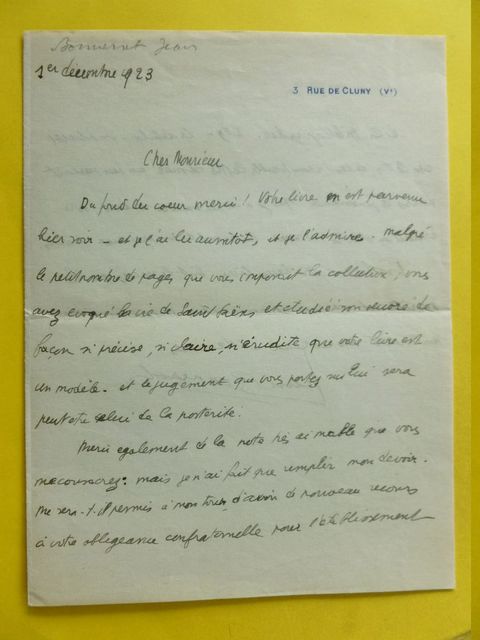 Bonnerot Jean
1er décembre 1923
3 RUE DE CLUNY (Ve)
Cher Monsieur
Du fond du coeur merci! Votre livre m'est parvenu
hier soir - et je l'ai lu aussitôt, et je l'admire. malgré
le petit nombre de pages que vous imposait la collection, vous
avez évoqué la vie de Saint Saëns et étudié son oeuvre de
façon si précise, si claire, si érudite que votre livre est
un modèle. et le jugement que vous portez sur lui sera
peut etre celui de la postérité.
Merci également de la note très aimable que vous
me consacrez: mais je n'ai fait que remplir mon devoir.
me sera-t-il permis à mon tour d'avoir de nouveau recours
à votre obligeance confraternelle pour l'établissement